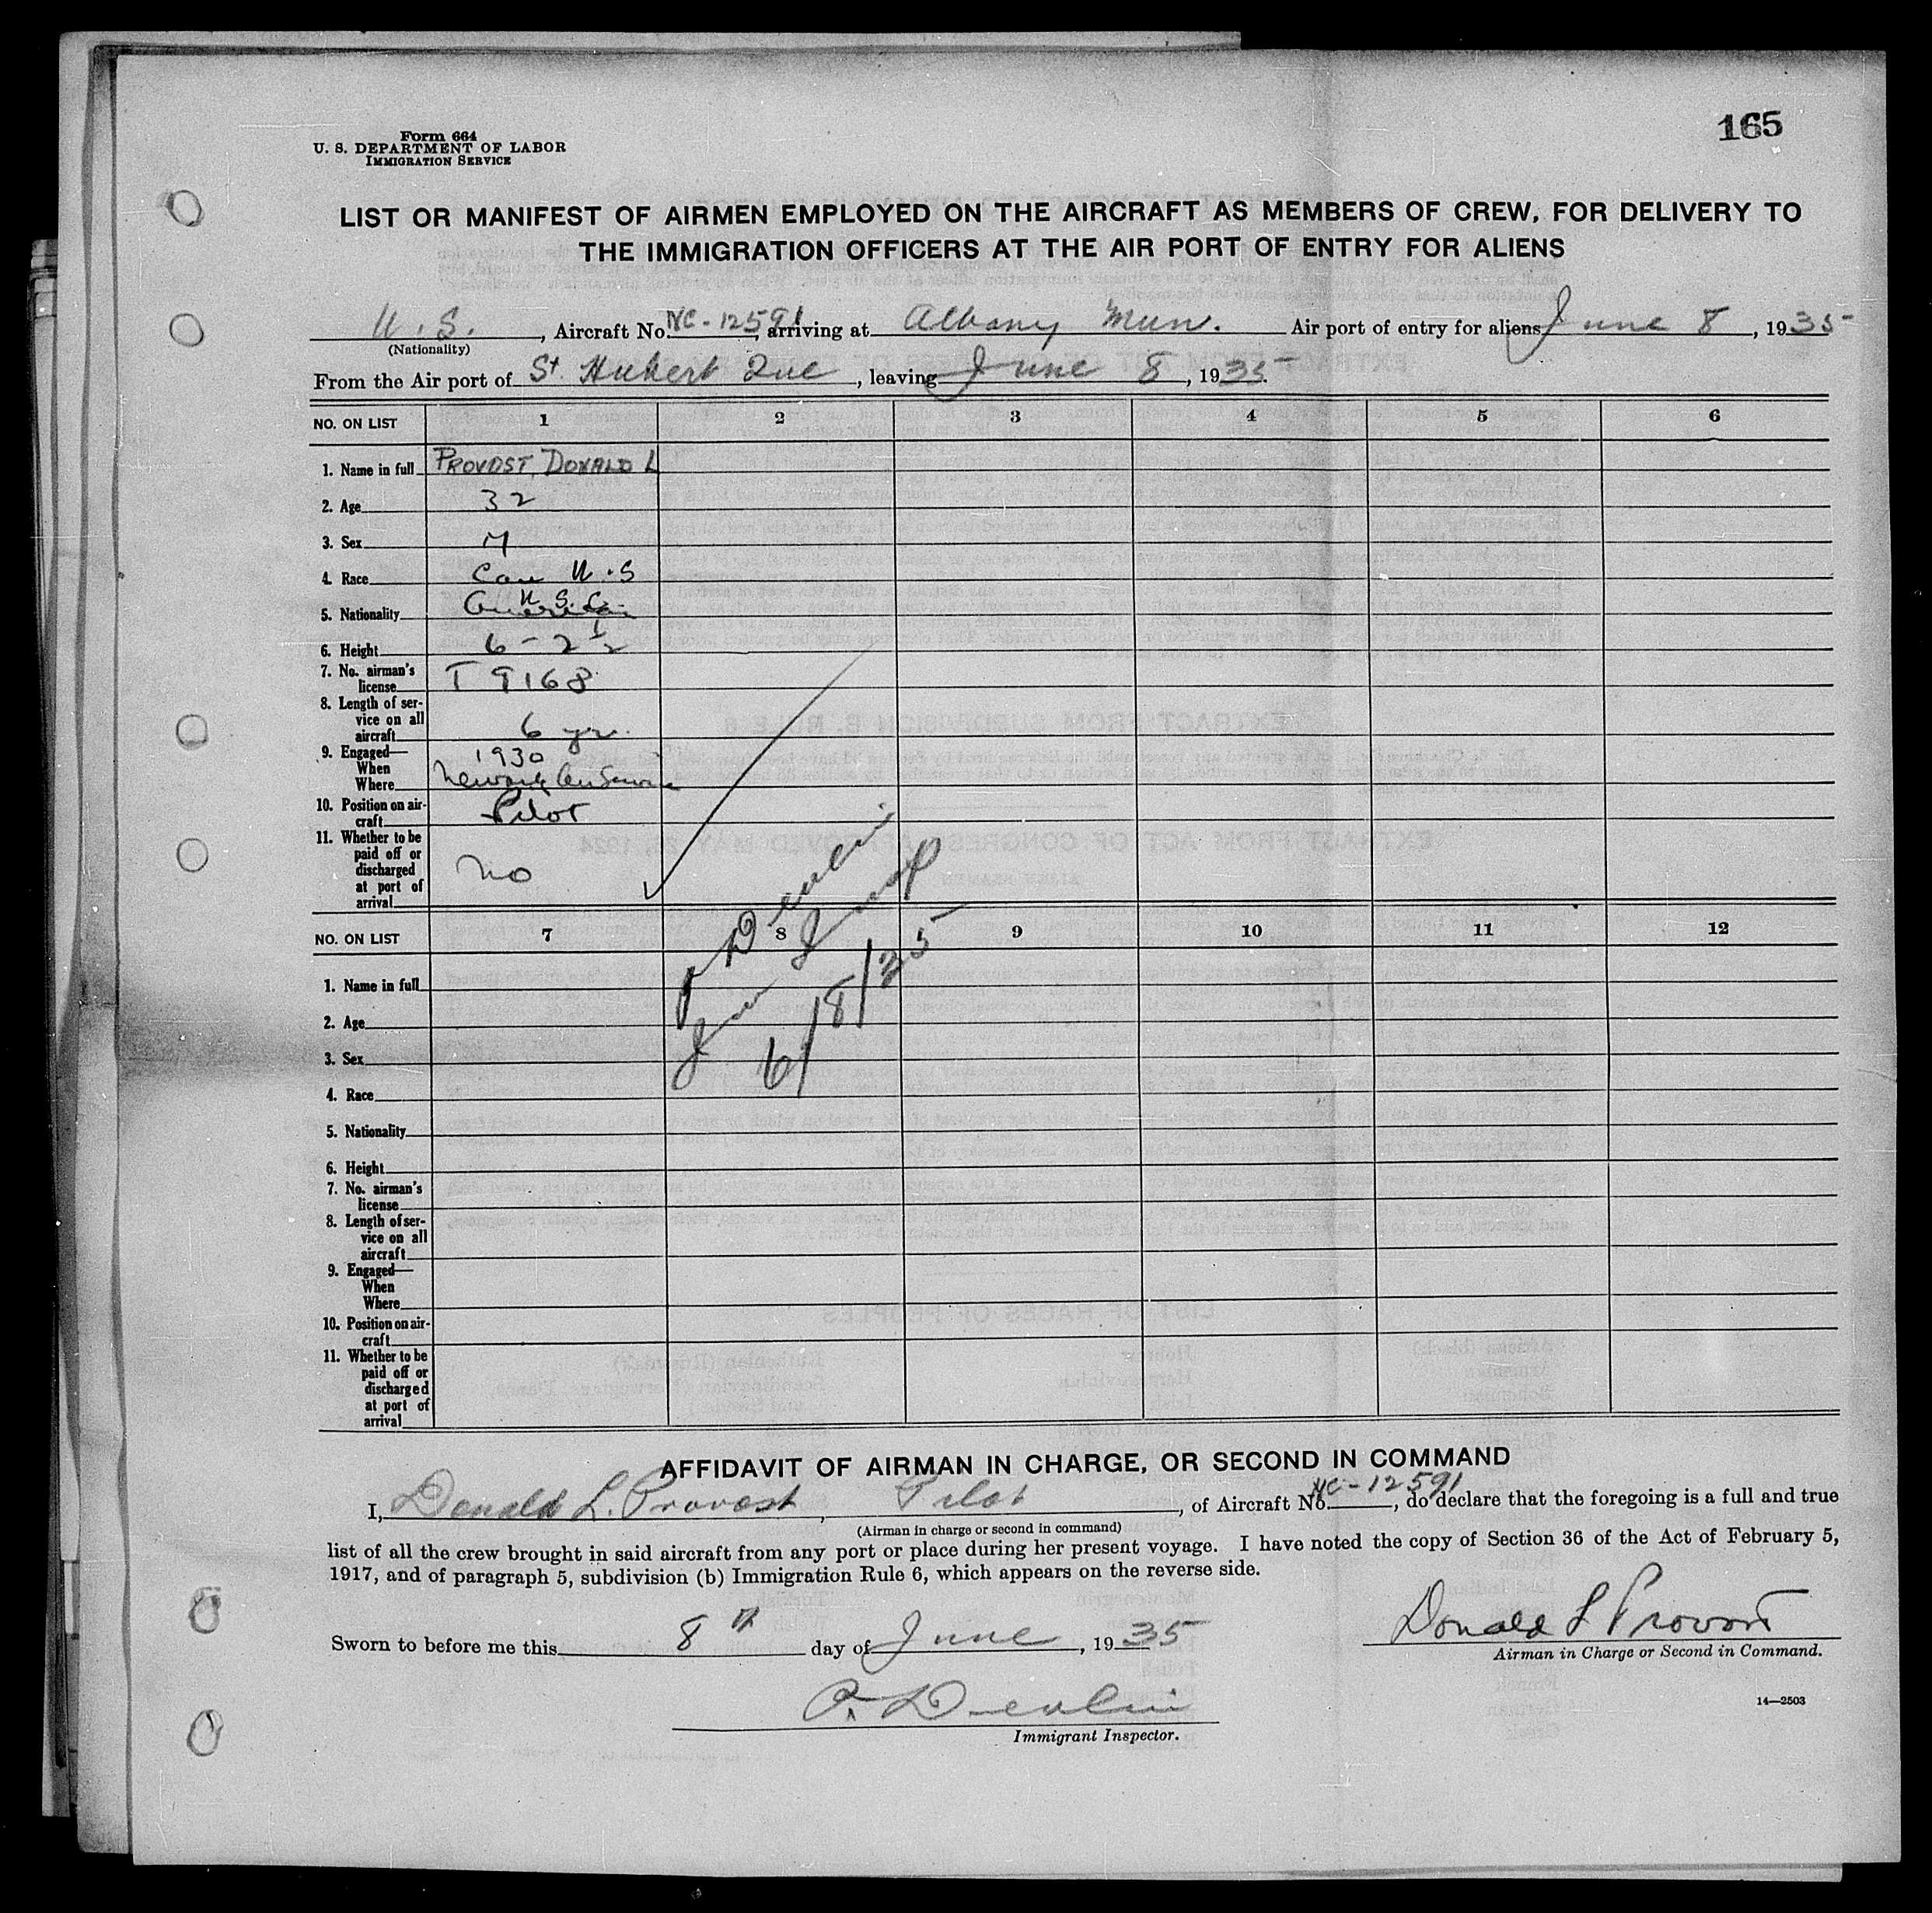 165
Form 664
U. S. DEPARTMENT OF LABOR
IMMIGRATION SERVICE
LIST OR MANIFEST OF AIRMEN EMPLOYED ON THE AIRCRAFT AS MEMBERS OF CREW, FOR DELIVERY TO
THE IMMIGRATION OFFICERS AT THE AIR PORT OF ENTRY FOR ALIENS
U. S., Aircraft No. NC-12591 arriving at Albany Mun. Air port of entry for aliens June 8, 1935
(Nationality)
From the Air port of St. Hubert Que, leaving June 8, 1935.
NO. ON LIST 1 2 3 4 5 6
1. Name in full PROVOST, DONALD L
2. Age 32
3. Sex M
4. Race Cau U.S
5. Nationality American U.S.C.
6. Height 6-2½
7. No. airman's
license T 9168
8. Length of ser-
vice on all
aircraft 6 yr.
9. Engaged—
When 1930
Where Newark
10. Position on air-
craft Pilot
11. Whether to be
paid off or
discharged
at port of
arrival No
P Devlin
Imm Insp
6/8/35
NO. ON LIST 7 8 9 10 11 12
1. Name in full
2. Age
3. Sex
4. Race
5. Nationality
6. Height
7. No. airman's
license
8. Length of ser-
vice on all
aircraft
9. Engaged—
When
Where
10. Position on air-
craft
11. Whether to be
paid off or
discharged
at port of
arrival
AFFIDAVIT OF AIRMAN IN CHARGE, OR SECOND IN COMMAND
I, Donald L. Provost, Pilot, of Aircraft No. NC-12591, do declare that the foregoing is a full and true
(Airman in charge or second in command)
list of all the crew brought in said aircraft from any port or place during her present voyage. I have noted the copy of Section 36 of the Act of February 5,
1917, and of paragraph 5, subdivision (b) Immigration Rule 6, which appears on the reverse side.
Sworn to before me this 8th day of June, 1935
Donald L Provost
Airman in Charge or Second in Command.
P. Devlin
Immigrant Inspector.
14—2503